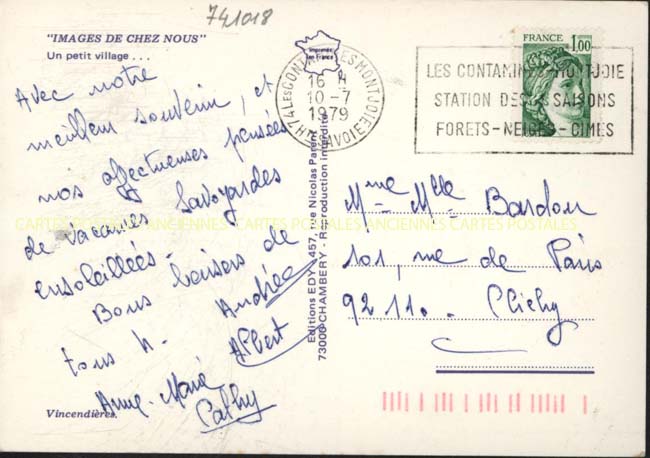 741018
"IMAGES DE CHEZ NOUS"
Un petit village . . .
Avec notre
meilleur souvenir, et
nos affectueuses pensées
de vacances Savoyardes
ensoleillées.
Bons baisers de
tous 4.
Andrée
Albert
Anne-Marie
Cathy
Vincendières.
Imprimée en France
74 LES CONTAMINES MONTJOIE
HTE SAVOIE
16 H
10-7
1979
FRANCE 1,00
LES CONTAMINES-MONTJOIE
STATION DES SAISONS
FORETS-NEIGES-CIMES
Editions EDY - 457, rue Nicolas Parent
73000 CHAMBERY - Reproduction interdite
Mme Mlle Bardou
101, rue de Paris
92110. Clichy
CARTES POSTALES ANCIENNES CARTES POSTALES ANCIENNES CARTES POSTALES